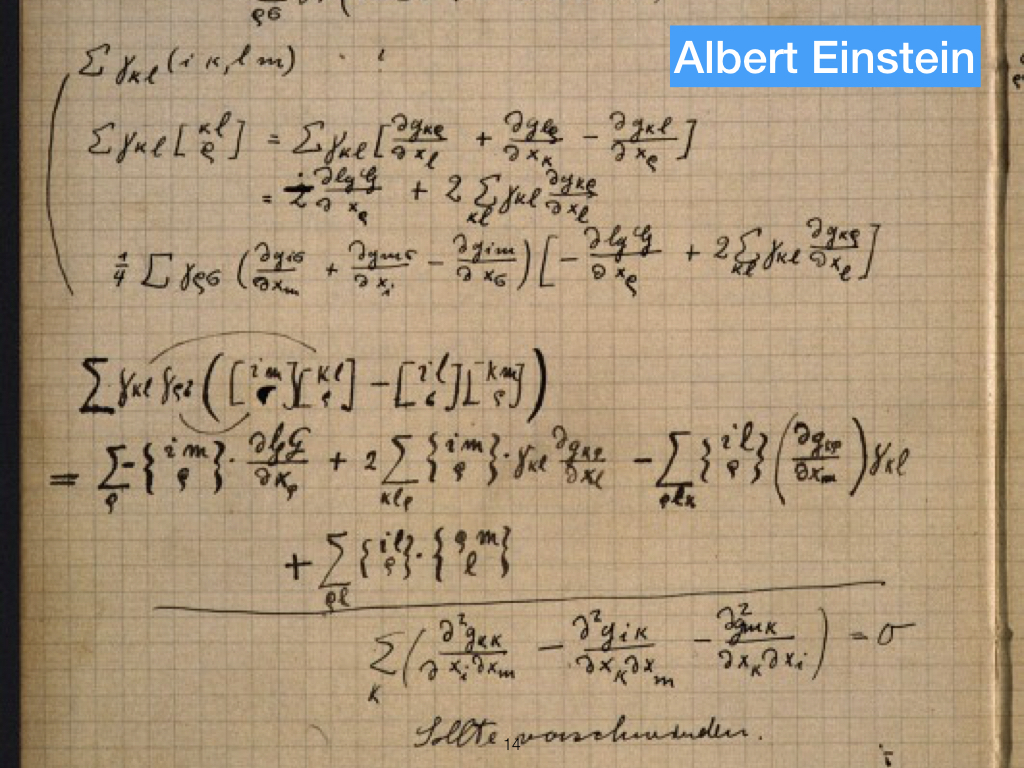 ρσ
Albert Einstein
Σ γκl (i κ, l m)
Σ γκl [κl ρ] = Σ γκl [∂gκρ/∂xl + ∂glρ/∂xκ − ∂gκl/∂xρ]
= ∂lg G/∂xρ + 2 Σκl γκl ∂gκρ/∂xl
1/4 Σ γρσ (∂giσ/∂xm + ∂gmσ/∂xi − ∂gim/∂xσ) [− ∂lg G/∂xρ + 2 Σκl γκl ∂gκρ/∂xl]
Σ γκl γρσ ([i m σ][κ l ρ] − [i l σ][κ m ρ])
= Σρ −{i m ρ} · ∂lg G/∂xρ + 2 Σκlρ {i m ρ} · γκl ∂gκρ/∂xl − Σρlκ {i l ρ} (∂gκρ/∂xm) γκl
+ Σρl {i l ρ} · {ρ m l}
Σκ (∂²gκκ/∂xi∂xm − ∂²giκ/∂xκ∂xm − ∂²gmκ/∂xκ∂xi) = 0
Sollte verschwinden.
14